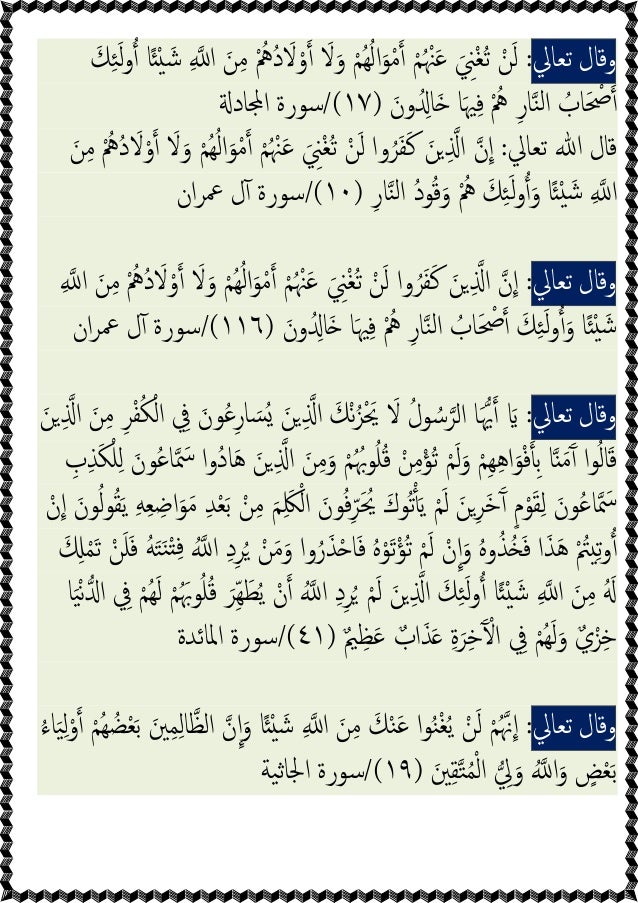 وقال تعالي: لَنْ تُغْنِيَ عَنْهُمْ أَمْوَالُهُمْ وَلَا أَوْلَادُهُمْ مِنَ اللَّهِ شَيْئًا أُولَئِكَ
أَصْحَابُ النَّارِ هُمْ فِيهَا خَالِدُونَ (١٧)/سورة المجادلة
قال الله تعالي: إِنَّ الَّذِينَ كَفَرُوا لَنْ تُغْنِيَ عَنْهُمْ أَمْوَالُهُمْ وَلَا أَوْلَادُهُمْ مِنَ
اللَّهِ شَيْئًا وَأُولَئِكَ هُمْ وَقُودُ النَّارِ (١٠)/سورة آل عمران
وقال تعالي: إِنَّ الَّذِينَ كَفَرُوا لَنْ تُغْنِيَ عَنْهُمْ أَمْوَالُهُمْ وَلَا أَوْلَادُهُمْ مِنَ اللَّهِ
شَيْئًا وَأُولَئِكَ أَصْحَابُ النَّارِ هُمْ فِيهَا خَالِدُونَ (١١٦)/سورة آل عمران
وقال تعالي: يَا أَيُّهَا الرَّسُولُ لَا يَحْزُنْكَ الَّذِينَ يُسَارِعُونَ فِي الْكُفْرِ مِنَ الَّذِينَ
قَالُوا آَمَنَّا بِأَفْوَاهِهِمْ وَلَمْ تُؤْمِنْ قُلُوبُهُمْ وَمِنَ الَّذِينَ هَادُوا سَمَّاعُونَ لِلْكَذِبِ
سَمَّاعُونَ لِقَوْمٍ آَخَرِينَ لَمْ يَأْتُوكَ يُحَرِّفُونَ الْكَلِمَ مِنْ بَعْدِ مَوَاضِعِهِ يَقُولُونَ إِنْ
أُوتِيتُمْ هَذَا فَخُذُوهُ وَإِنْ لَمْ تُؤْتَوْهُ فَاحْذَرُوا وَمَنْ يُرِدِ اللَّهُ فِتْنَتَهُ فَلَنْ تَمْلِكَ
لَهُ مِنَ اللَّهِ شَيْئًا أُولَئِكَ الَّذِينَ لَمْ يُرِدِ اللَّهُ أَنْ يُطَهِّرَ قُلُوبَهُمْ لَهُمْ فِي الدُّنْيَا
خِزْيٌ وَلَهُمْ فِي الْآَخِرَةِ عَذَابٌ عَظِيمٌ (٤١)/سورة المائدة
وقال تعالي: إِنَّهُمْ لَنْ يُغْنُوا عَنْكَ مِنَ اللَّهِ شَيْئًا وَإِنَّ الظَّالِمِينَ بَعْضُهُمْ أَوْلِيَاءُ
بَعْضٍ وَاللَّهُ وَلِيُّ الْمُتَّقِينَ (١٩)/سورة الجاثية